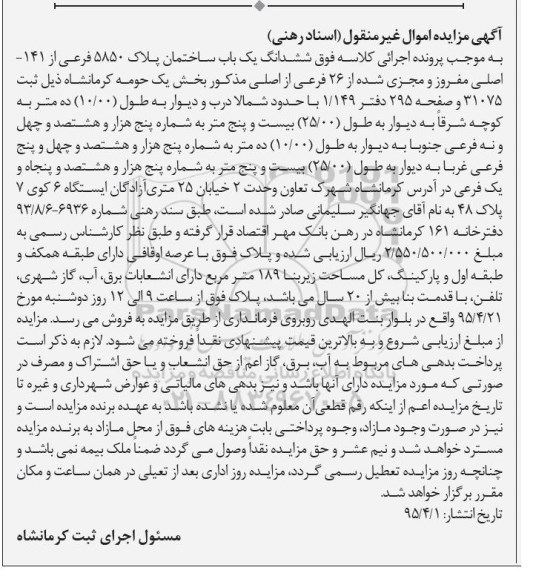 آگهی مزایده اموال غیرمنقول (اسناد رهنی)
به موجب پرونده اجرائی کلاسه فوق ششدانگ یک باب ساختمان پلاک ۵۸۵۰ فرعی از ۱۴۱-
اصلی مفروز و مجزی شده از ۲۶ فرعی از اصلی مذکور بخش یک حومه کرمانشاه ذیل ثبت
۳۱۰۷۵ و صفحه ۲۹۵ دفتر ۱/۱۴۹ با حدود شمالا درب و دیوار به طول (۱۰/۰۰) ده متر به
کوچه شرقاً به دیوار به طول (۲۵/۰۰) بیست و پنج متر به شماره پنج هزار و هشتصد و چهل
و نه فرعی جنوبا به دیوار به طول (۱۰/۰۰) ده متر به شماره پنج هزار و هشتصد و چهل و پنج
فرعی غربا به دیوار به طول (۲۵/۰۰) بیست و پنج متر به شماره پنج هزار و هشتصد و پنجاه و
یک فرعی در آدرس کرمانشاه شهرک تعاون وحدت ۲ خیابان ۲۵ متری آزادگان ایستگاه ۶ کوی ۷
پلاک ۴۸ به نام آقای جهانگیر سلیمانی صادر شده است، طبق سند رهنی شماره ۶۹۳۶-۹۳/۸/۶
دفترخانه ۱۶۱ کرمانشاه در رهن بانک مهر اقتصاد قرار گرفته و طبق نظر کارشناس رسمی به
مبلغ ۲/۵۵۰/۵۰۰/۰۰۰ ریال ارزیابی شده و پلاک فوق با عرصه اوقافی دارای طبقه همکف و
طبقه اول و پارکینگ، کل مساحت زیربنا ۱۸۹ متر مربع دارای انشعابات برق، آب، گاز شهری،
تلفن، با قدمت بنا بیش از ۲۰ سال می باشد، پلاک فوق از ساعت ۹ الی ۱۲ روز دوشنبه مورخ
۹۵/۴/۲۱ واقع در بلوار بنت الهدی روبروی فرمانداری از طریق مزایده به فروش می رسد. مزایده
از مبلغ ارزیابی شروع و به بالاترین قیمت پیشنهادی نقداً فروخته می شود. لازم به ذکر است
پرداخت بدهی های مربوط به آب، برق، گاز اعم از حق انشعاب و یا حق اشتراک و مصرف در
صورتی که مورد مزایده دارای آنها باشد و نیز بدهی های مالیاتی و عوارض شهرداری و غیره تا
تاریخ مزایده اعم از اینکه رقم قطعی آن معلوم شده یا نشده باشد به عهده برنده مزایده است و
نیز در صورت وجود مازاد، وجوه پرداختی بابت هزینه های فوق از محل مازاد به برنده مزایده
مسترد خواهد شد و نیم عشر و حق مزایده نقداً وصول می گردد ضمناً ملک بیمه نمی باشد و
چنانچه روز مزایده تعطیل رسمی گردد، مزایده روز اداری بعد از تعیلی در همان ساعت و مکان
مقرر برگزار خواهد شد.
تاریخ انتشار: ۹۵/۴/۱
مسئول اجرای ثبت کرمانشاه